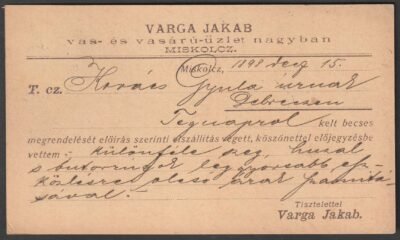 VARGA JAKAB
vas- és vasárú-üzlet nagyban
MISKOLCZ.
Miskolcz, 1898 decz 15.
T. cz. Kovács Gyula úrnak
Debreczen
Tegnapról kelt becses
megrendelését előírás szerinti elszállítás végett, köszönettel előjegyzésbe
vettem: különféle szeg, huzal
s butorrugók leggyorsabb
olcsó árak
Tisztelettel
Varga Jakab.